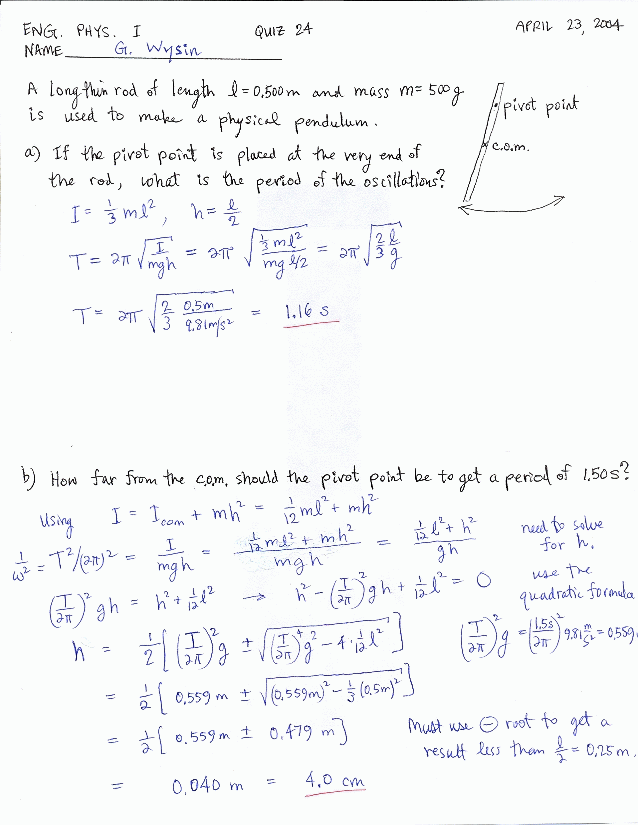 ENG. PHYS. I QUIZ 24 APRIL 23, 2004
NAME G. Wysin
A long thin rod of length l = 0.500 m and mass m = 500 g
is used to make a physical pendulum.
pivot point
c.o.m.
a) If the pivot point is placed at the very end of
the rod, what is the period of the oscillations?
I = 1/3 ml², h = l/2
T = 2π √(I/mgh) = 2π √(1/3 ml² / mg l/2) = 2π √(2/3 l/g)
T = 2π √(2/3 0.5m/9.81m/s²) = 1.16 s
b) How far from the c.o.m. should the pivot point be to get a period of 1.50 s?
Using I = Icom + mh² = 1/12 ml² + mh²
1/ω² = T²/(2π)² = I/mgh = (1/12 ml² + mh²)/mgh = (1/12 l² + h²)/gh
need to solve
for h.
use the
quadratic formula
(T/2π)² gh = h² + 1/12 l² → h² - (T/2π)² gh + 1/12 l² = 0
h = 1/2 [ (T/2π)² g ± √((T/2π)⁴ g² - 4·1/12 l²) ]
(T/2π)² g = (1.5s/2π)² 9.81 m/s² = 0.559
= 1/2 [ 0.559 m ± √((0.559m)² - 1/3 (0.5m)²) ]
= 1/2 [ 0.559 m ± 0.479 m ]
Must use ⊖ root to get a
result less than l/2 = 0.25 m.
= 0.040 m = 4.0 cm